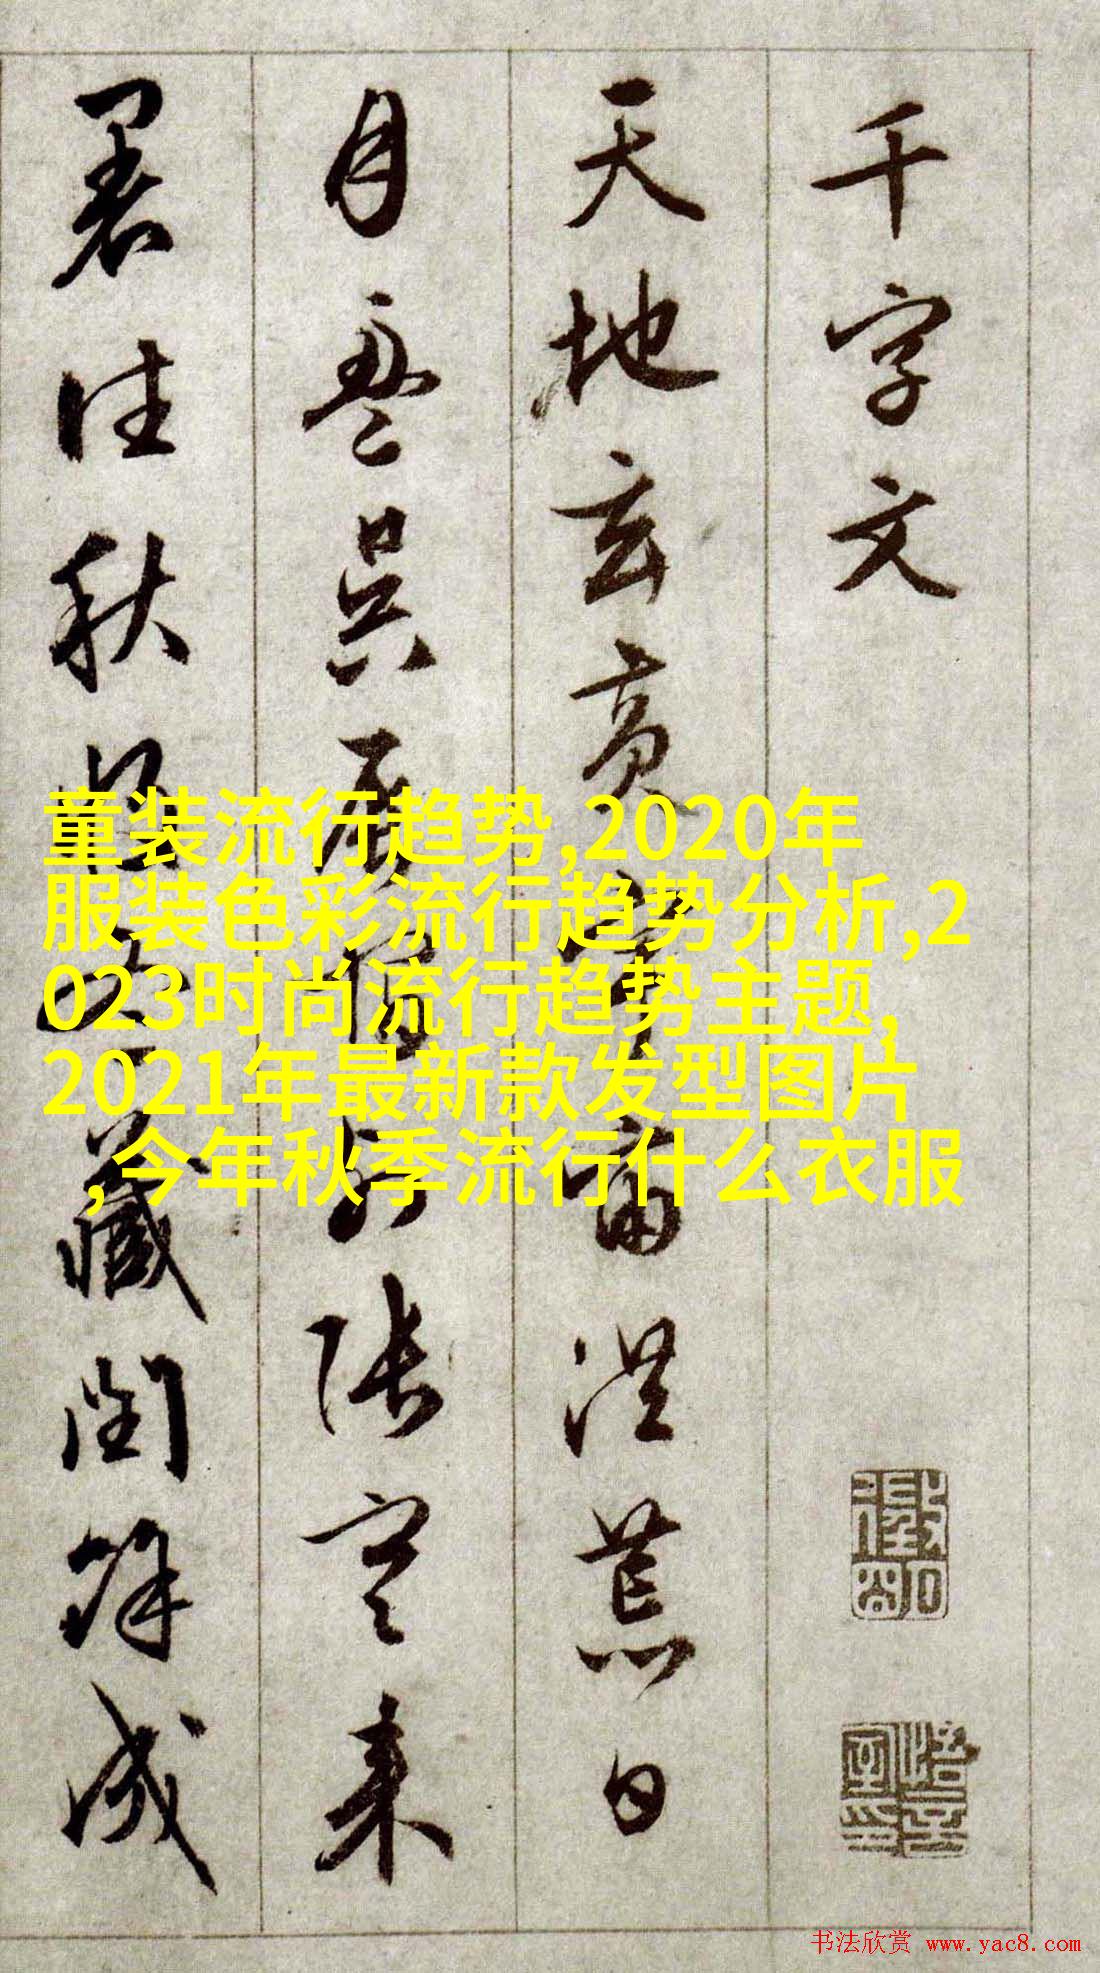 千字文
天地玄黄宇宙洪荒日
月盈昃辰宿列张寒来
暑往秋收冬藏闰馀成
童装流行趋势,2020年
服装色彩流行趋势分析,2
023时尚流行趋势主题,
2021年最新款发型图片
,今年秋季流行什么衣服
书法欣赏 www.yac8.com